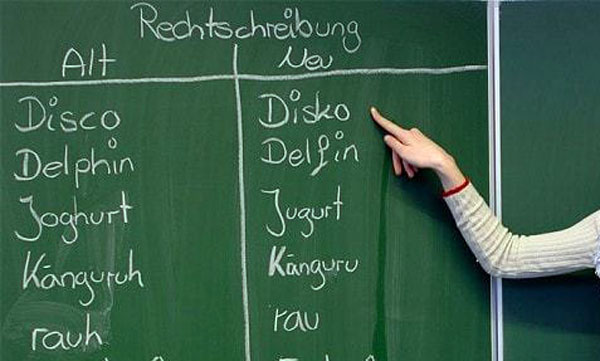 Rechtschreibung
Alt Neu
Disco Disko
Delphin Delfin
Joghurt Jugurt
Känguruh Känguru
rauh rau